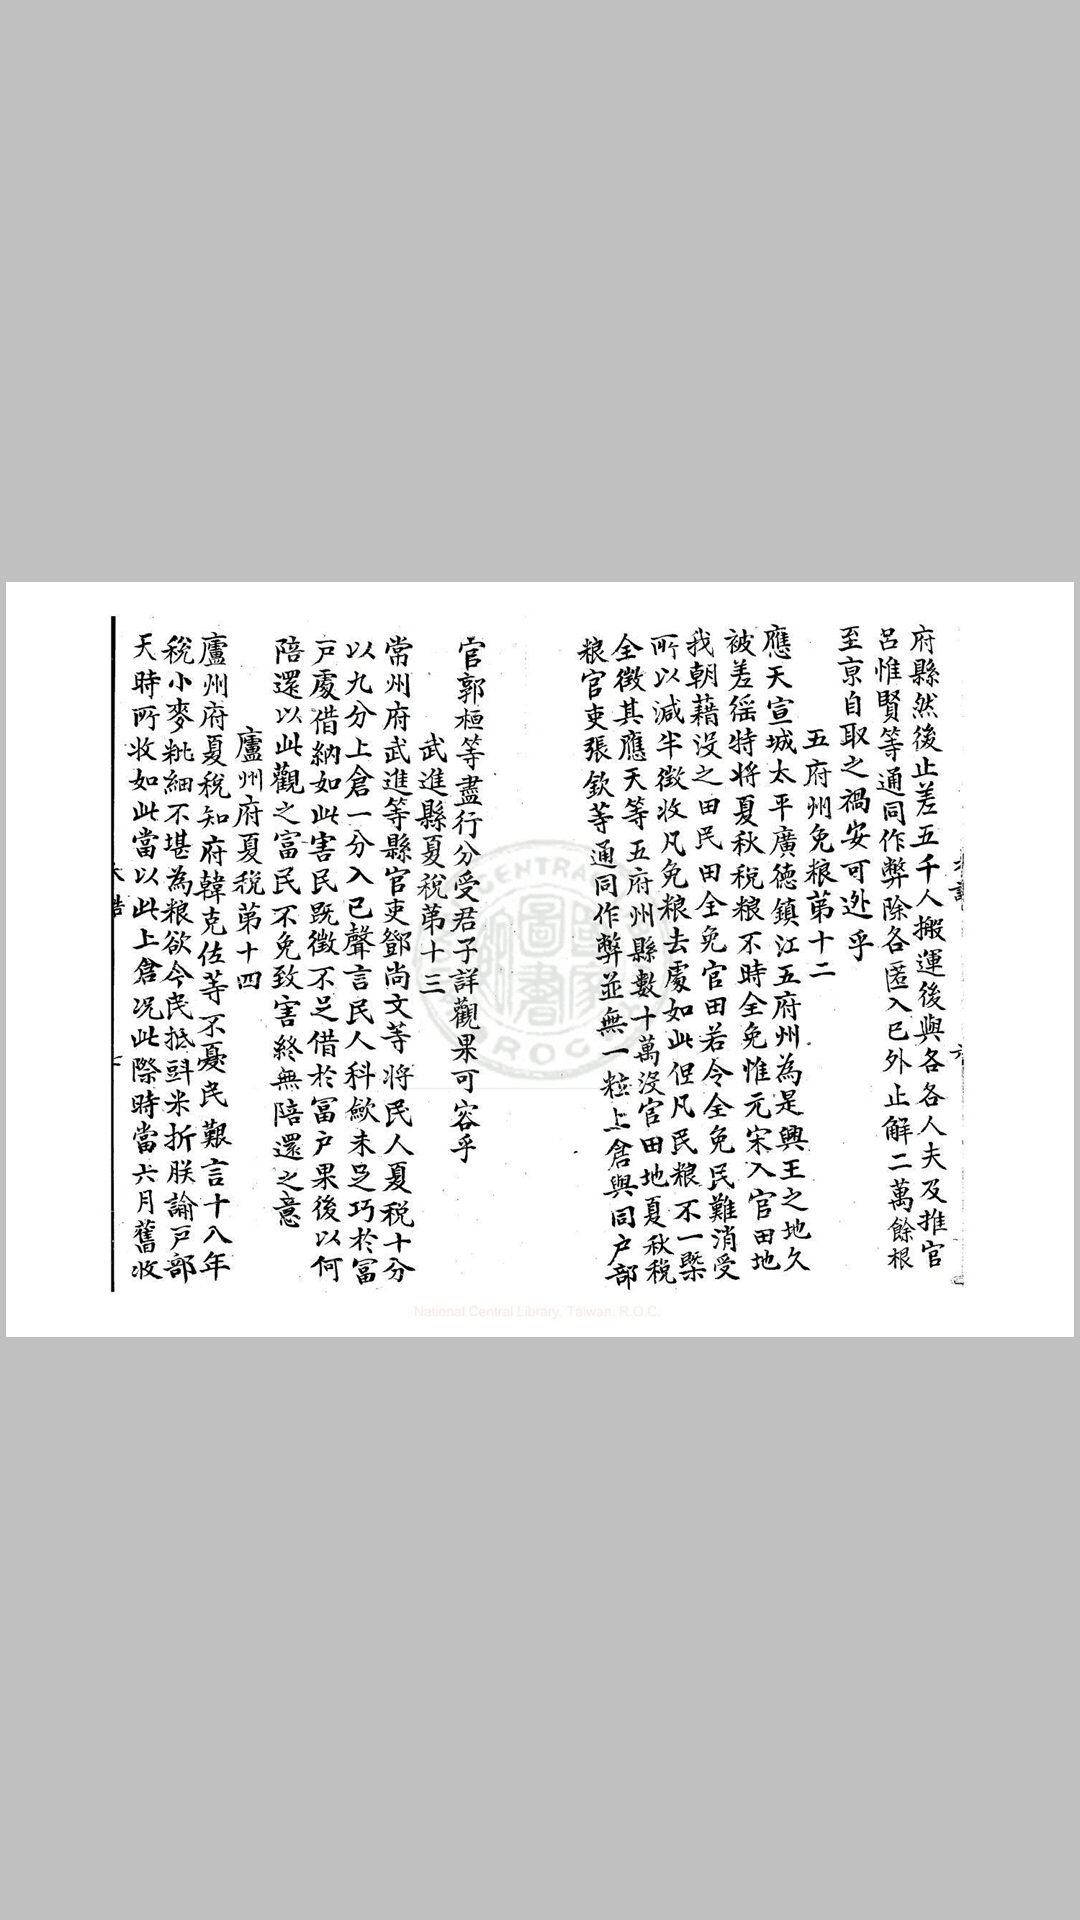 府縣然後止差五千人搬運後與各各人夫及推官
呂惟賢等通同作弊除各匿入已外止解二萬餘根
至京自取之禍安可迯乎
五府州免粮第十二
應天宣城太平廣德鎮江五府州為是興王之地久
被差徭特将夏秋稅粮不時全免惟元宋入官田地
我朝藉沒之田民田全免官田若令全免民難消受
所以減半徵收凡免粮去處如此但凡民粮不一槩
全徵其應天等五府州縣數十萬沒官田地夏秋稅
粮官吏張欽等通同作弊並無一粒上倉與同户部
官郭桓等盡行分受君子詳觀果可容乎
武進縣夏稅第十三
常州府武進等縣官吏鄧尚文等将民人夏稅十分
以九分上倉一分入已聲言民人科歛未足巧於富
户處借納如此害民既徵不足借於富户果後以何
陪還以此觀之富民不免致害終無陪還之意
廬州府夏稅第十四
廬州府夏稅知府韓克佐等不憂民艱言十八年
稅小麥粃細不堪為粮欲令民抵斗米折朕諭户部
天時所收如此當以此上倉况此際時當六月舊收
National Central Library, Taiwan, R.O.C.